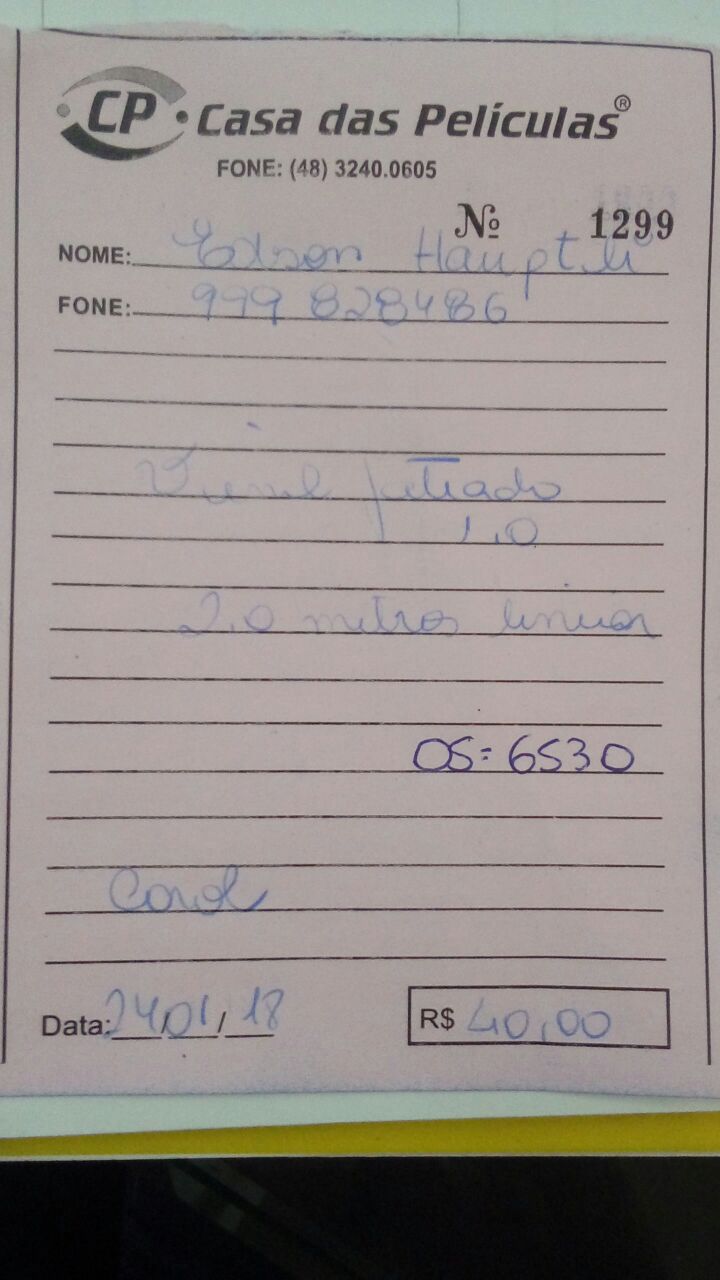 CP Casa das Películas®
FONE: (48) 3240.0605
Nº 1299
NOME: Edson
FONE: 999828486
Vinil jateado
1.0
2.0 metros linear
OS: 6530
Carol
Data: 24/01/18 R$ 40,00